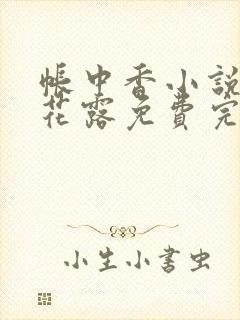 帳中香小說
花露免費完
小生小書虫